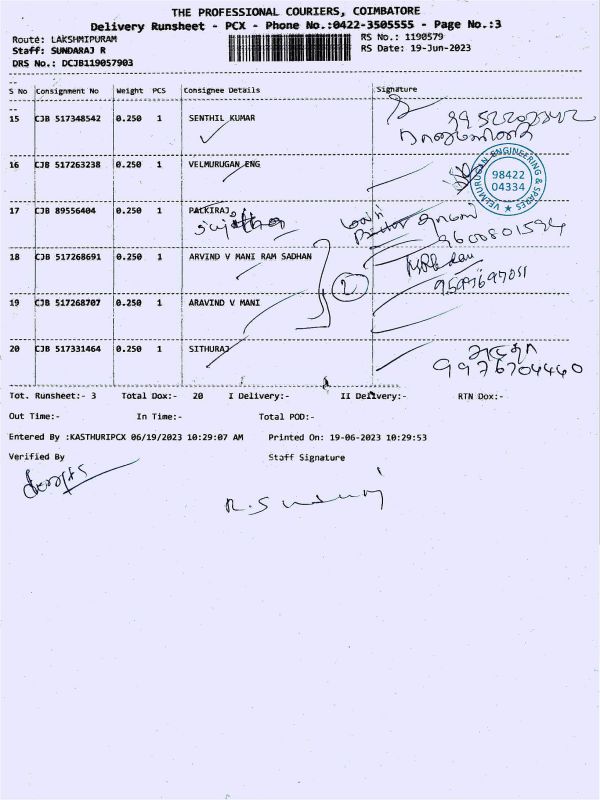 THE PROFESSIONAL COURIERS, COIMBATORE
Delivery Runsheet - PCX - Phone No.:0422-3505555 - Page No.:3
Route: LAKSHMIPURAM RS No.: 1190579
Staff: SUNDARAJ R RS Date: 19-Jun-2023
DRS No.: DCJB119057903
S No Consignment No Weight PCS Consignee Details Signature
15 CJB 517348542 0.250 1 SENTHIL KUMAR
16 CJB 517263238 0.250 1 VELMURUGAN ENG
VELMURUGAN ENGINEERING & SPARES
98422
04334
17 CJB 89556404 0.250 1 PALKIRAJ
9600801594
18 CJB 517268691 0.250 1 ARVIND V MANI RAM SADHAN
2
9597697051
19 CJB 517268707 0.250 1 ARAVIND V MANI
20 CJB 517331464 0.250 1 SITHURAJ
9976704440
Tot. Runsheet:- 3 Total Dox:- 20 I Delivery:- II Delivery:- RTN Dox:-
Out Time:- In Time:- Total POD:-
Entered By :KASTHURIPCX 06/19/2023 10:29:07 AM Printed On: 19-06-2023 10:29:53
Verified By Staff Signature